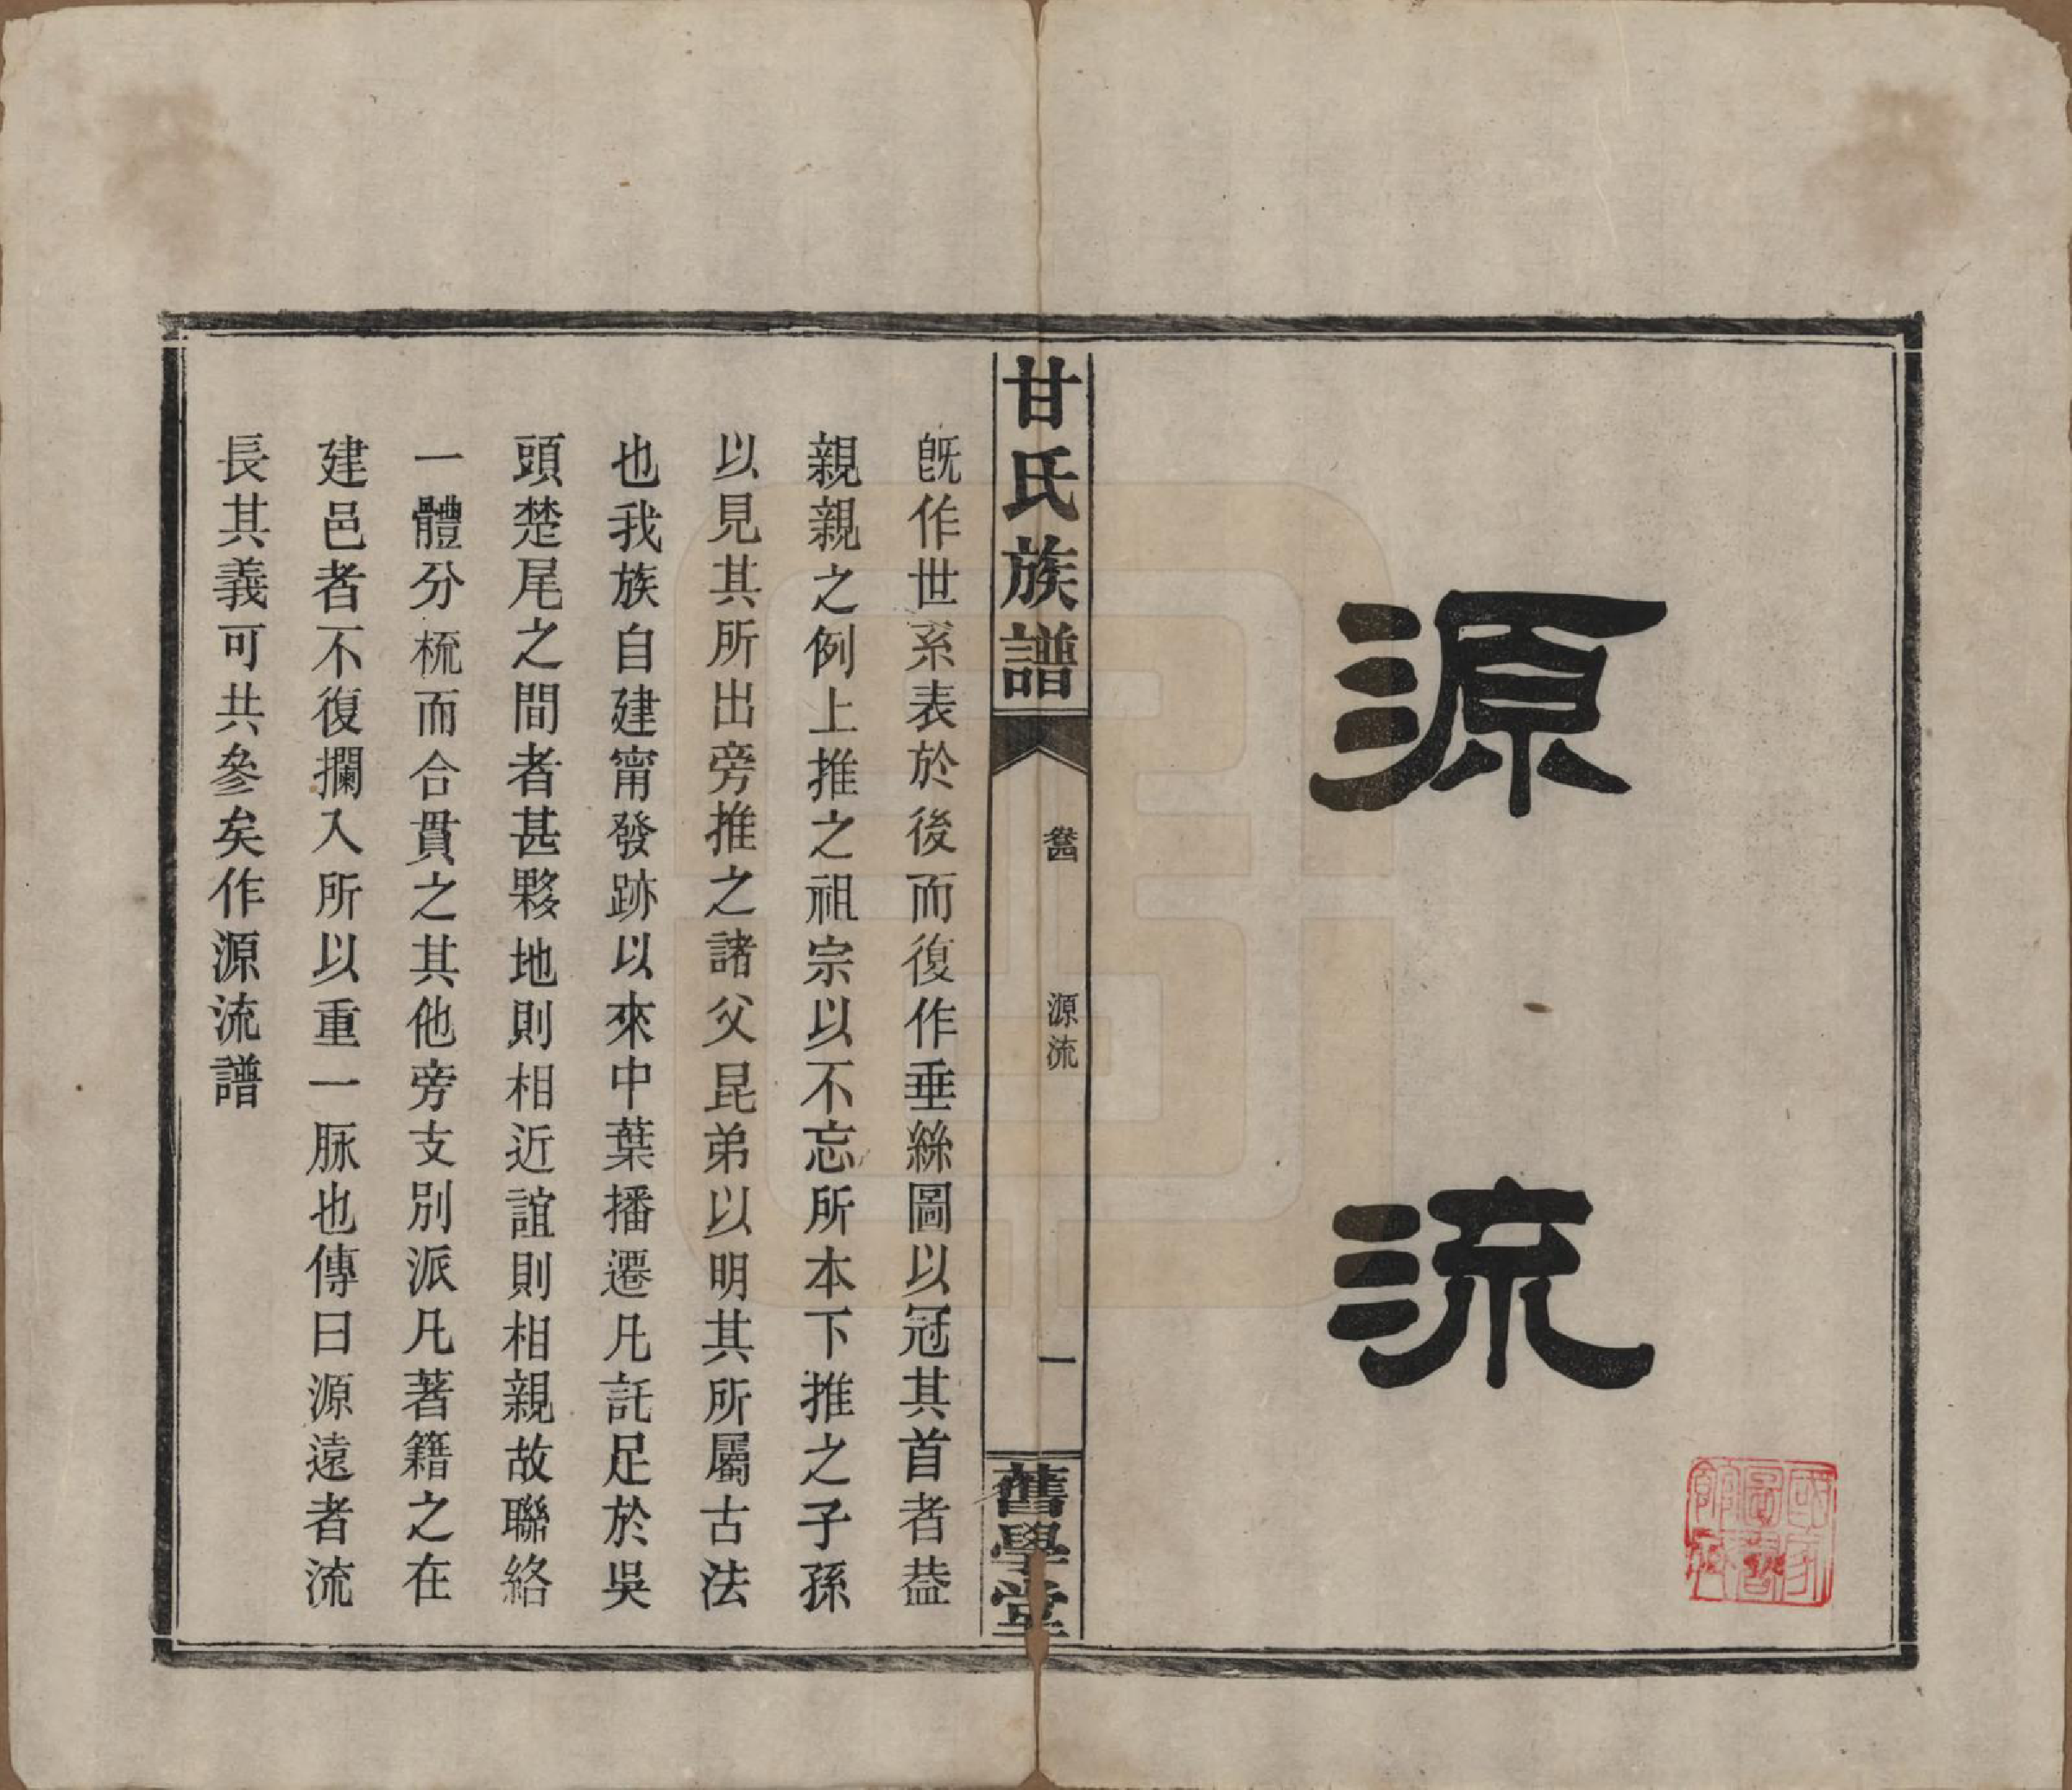 源流
國家圖書館藏書
甘氏族譜
卷四
源流
一
舊學堂
既作世系表於後而復作垂絲圖以冠其首者葢
親親之例上推之祖宗以不忘所本下推之子孫
以見其所出旁推之諸父昆弟以明其所屬古法
也我族自建甯發跡以來中葉播遷凡託足於吳
頭楚尾之間者甚夥地則相近誼則相親故聯絡
一體分梳而合貫之其他旁支別派凡著籍之在
建邑者不復攔入所以重一脈也傳曰源遠者流
長其義可共參矣作源流譜